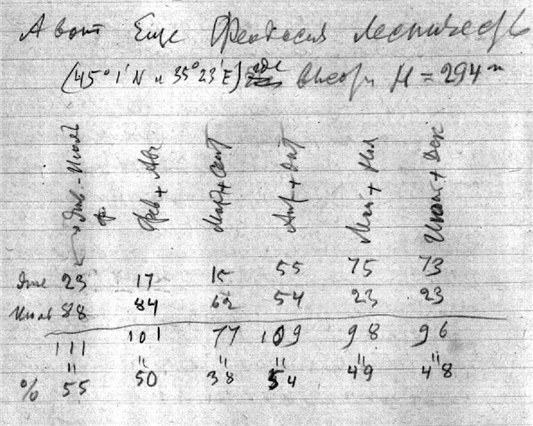 А вот Еще Феодосия лесничест
(45°1' N и 35°23' E) где высота H = 294 м
Янв.-Июль Фев + Авг Март + Сент Апр + Окт Май + Ноя Июнь + Дек
23 17 15 55 75 73
Июль 88 84 62 54 23 23
111 101 77 109 98 96
" " " " " "
% 55 50 38 54 49 48